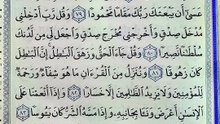 عَسَىٰٓ أَن يَبْعَثَكَ رَبُّكَ مَقَامًا مَّحْمُودًا ٧٩ وَقُل رَّبِّ أَدْخِلْنِى
مُدْخَلَ صِدْقٍ وَأَخْرِجْنِى مُخْرَجَ صِدْقٍ وَٱجْعَل لِّى مِن لَّدُنكَ
سُلْطَٰنًا نَّصِيرًا ٨٠ وَقُلْ جَآءَ ٱلْحَقُّ وَزَهَقَ ٱلْبَٰطِلُ إِنَّ ٱلْبَٰطِلَ
كَانَ زَهُوقًا ٨١ وَنُنَزِّلُ مِنَ ٱلْقُرْءَانِ مَا هُوَ شِفَآءٌ وَرَحْمَةٌ
لِّلْمُؤْمِنِينَ وَلَا يَزِيدُ ٱلظَّٰلِمِينَ إِلَّا خَسَارًا ٨٢ وَإِذَآ أَنْعَمْنَا عَلَى
ٱلْإِنسَٰنِ أَعْرَضَ وَنَـَٔا بِجَانِبِهِۦ وَإِذَا مَسَّهُ ٱلشَّرُّ كَانَ يَـُٔوسًا ٨٣